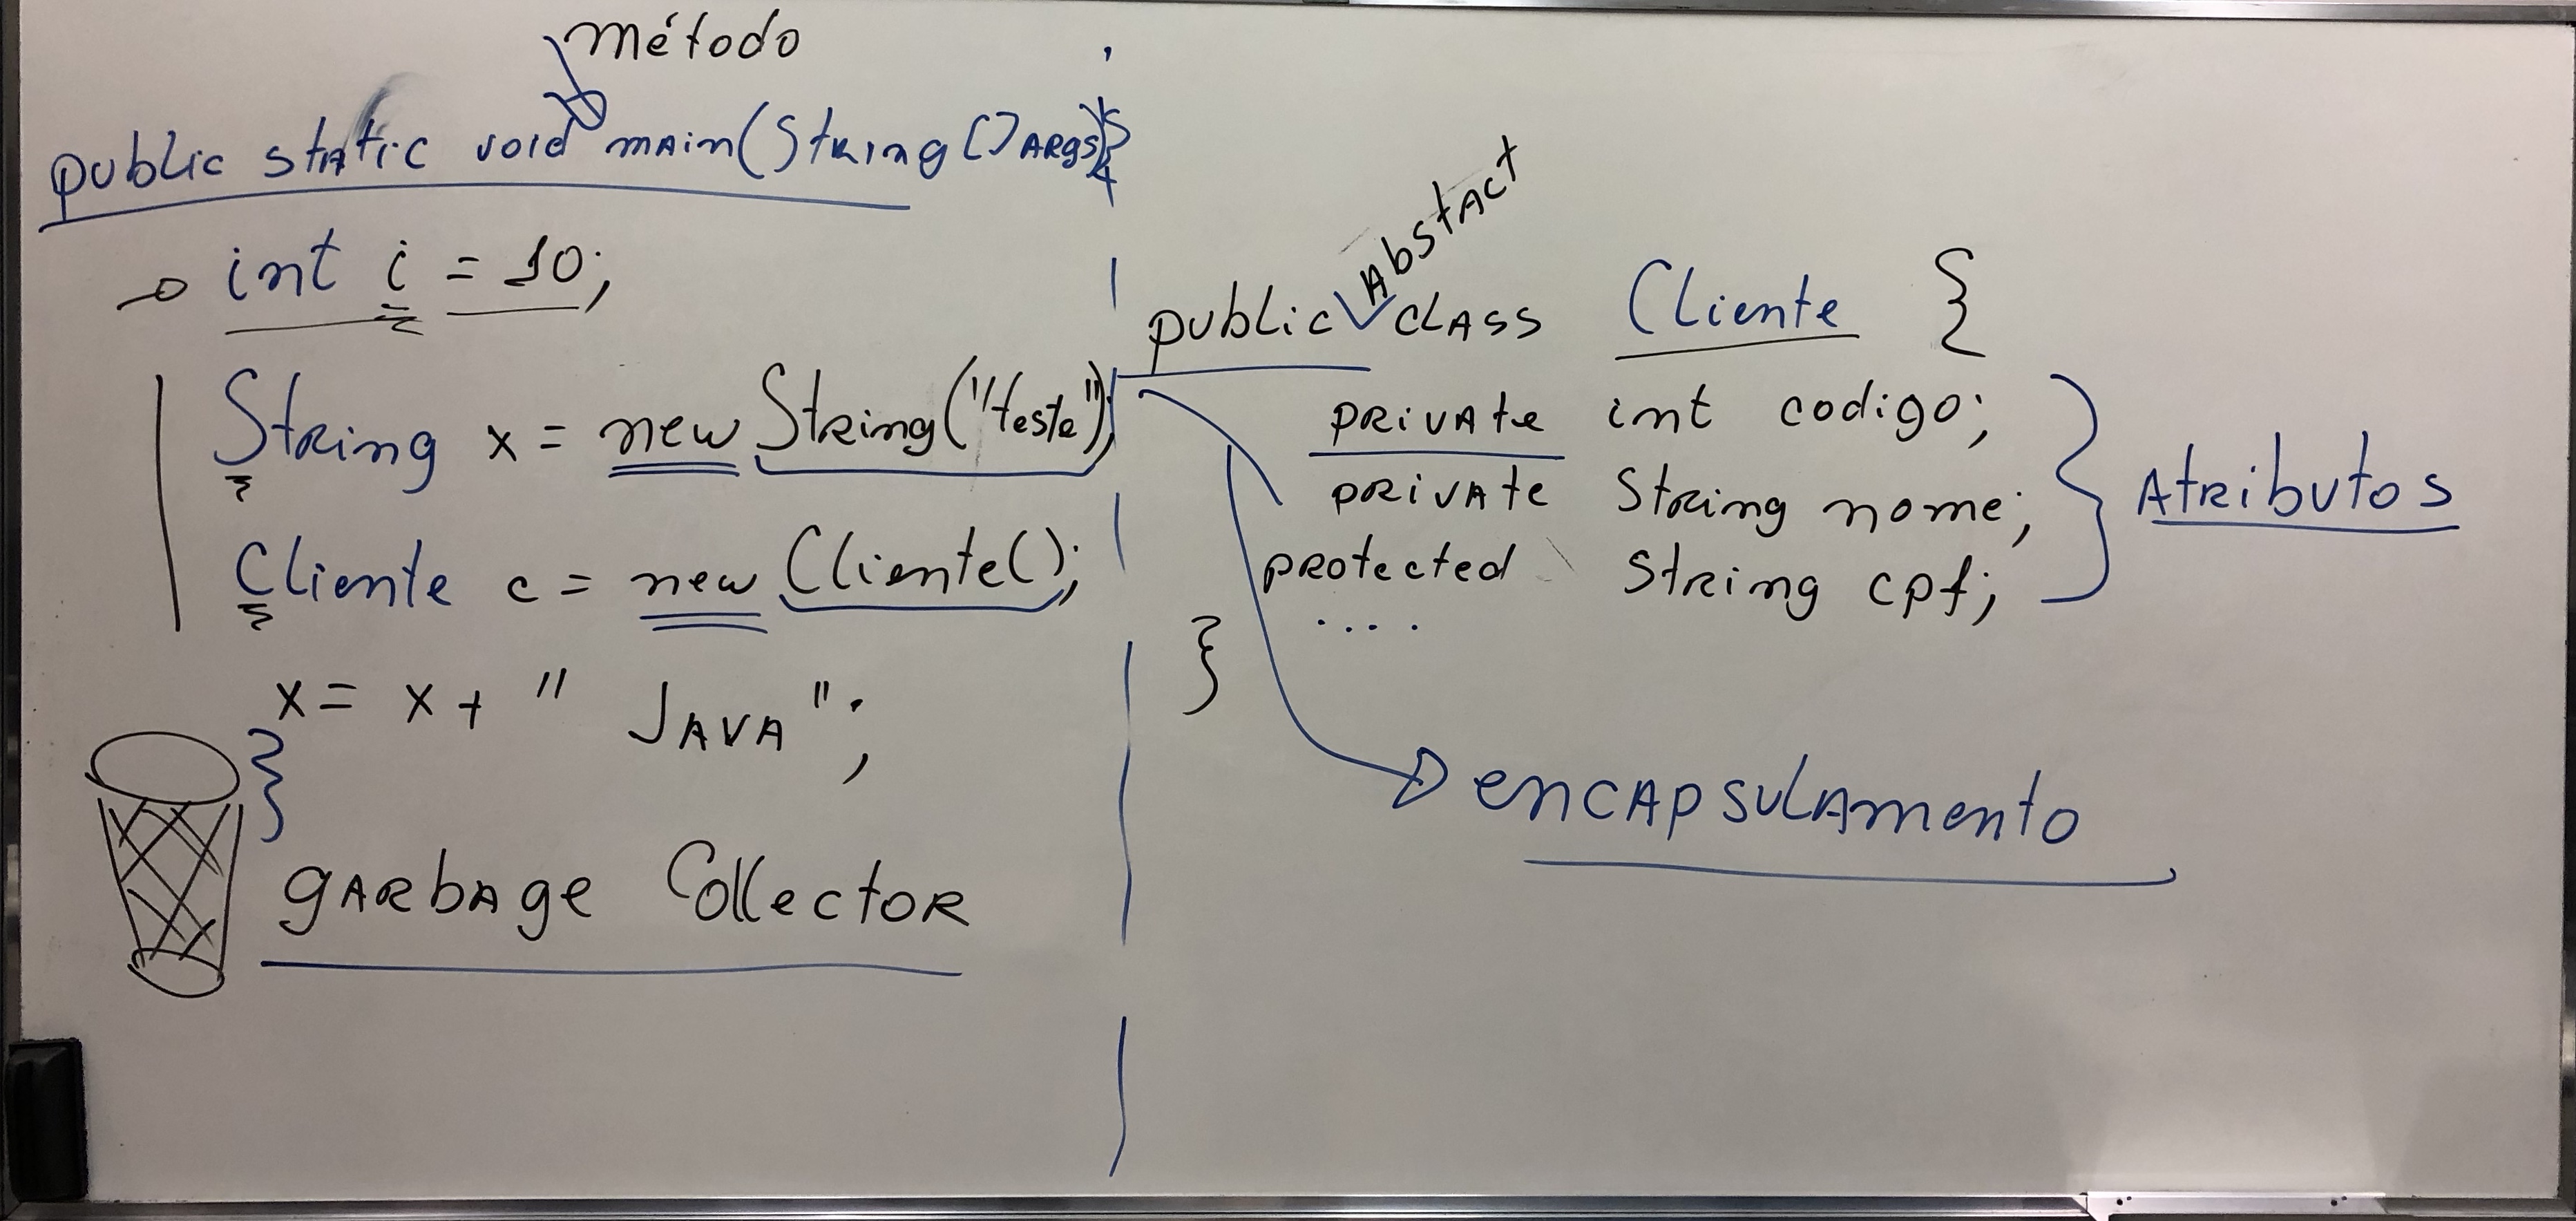 método
public static void main(String[] args){
int i = 10;
String x = new String("teste");
Cliente c = new Cliente();
x = x + " JAVA";
}
garbage Collector
Abstact
public class Cliente {
private int codigo;
private String nome;
protected String cpf;
....
}
Atributos
encapsulamento